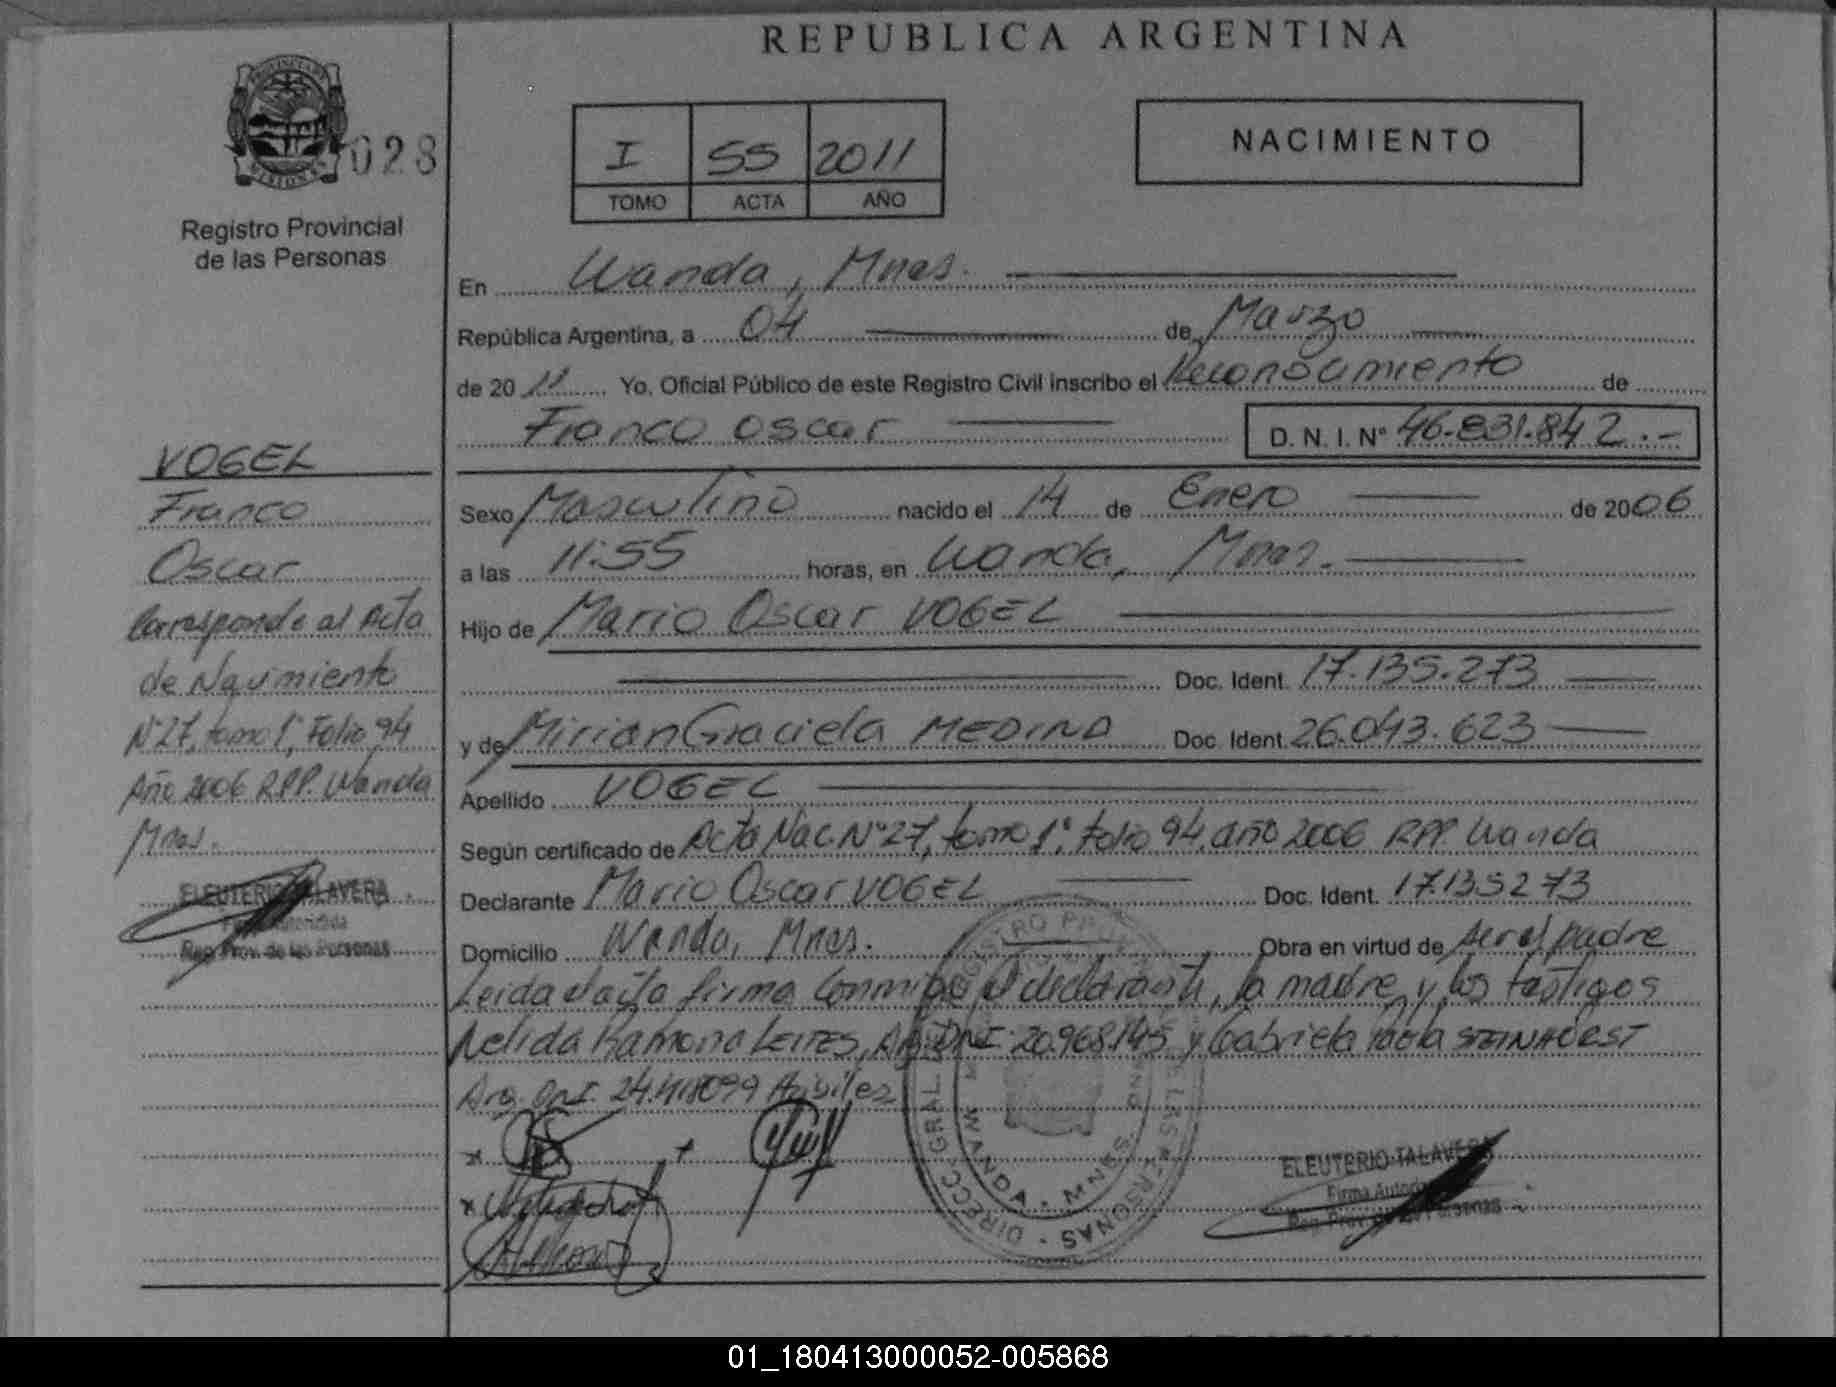 REPUBLICA ARGENTINA
PROVINCIA DE
MISIONES
028
Registro Provincial
de las Personas
I 55 2011
TOMO ACTA AÑO
NACIMIENTO
En Wanda, Mnes.
República Argentina, a 04 de Marzo
de 2011 Yo, Oficial Público de este Registro Civil inscribo el Reconocimiento de
Franco Oscar D. N. I. Nº 46.831.842.-
Sexo Masculino nacido el 14 de Enero de 2006
a las 11:55 horas, en Wanda, Mnes.
Hijo de Mario Oscar VOGEL
Doc. Ident. 17.135.273
y de Mirian Graciela MEDINA Doc. Ident. 26.043.623
Apellido VOGEL
Según certificado de Acta Nac. Nº 27, tomo 1º, Folio 94, año 2006 RPP. Wanda
Declarante Mario Oscar VOGEL Doc. Ident. 17.135273
Domicilio Wanda, Mnes. Obra en virtud de ser el padre
Leida el acta firma conmigo el declarante, la madre y los testigos
Nelida Ramona LEITES, Arg. DNI 20.968.145 y Gabriela STEINHORST
Arg. DNI.
VOGEL
Franco
Oscar
Corresponde al Acta
de Nacimiento
Nº 27, tomo 1º, Folio 94
Año 2006 RPP. Wanda
Mnes.
ELEUTERIO TALAVERA
Firma Autorizada
Reg. Prov. de las Personas
ELEUTERIO TALAVERA
Firma Autorizada
Reg. Prov. de las Personas
DIRECC. GRAL. REGISTRO PROV. DE LAS PERSONAS
WANDA - MNES
01_180413000052-005868